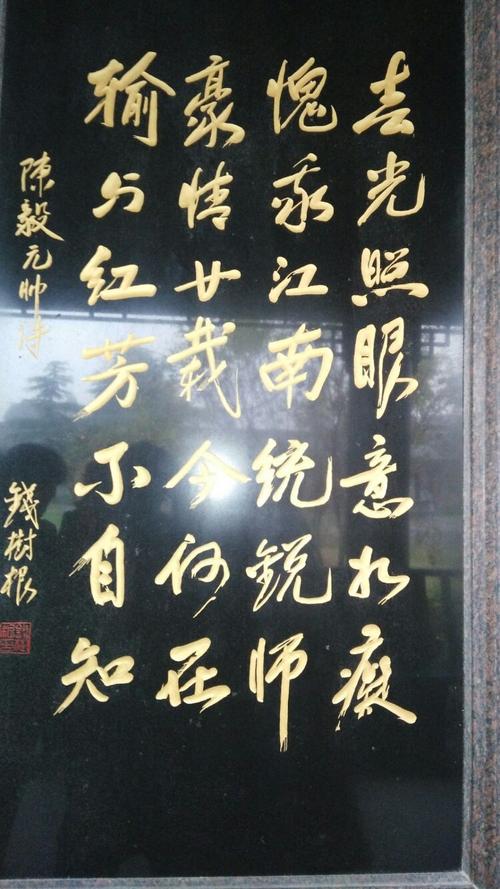 春光照眼意如癡
愧我江南统锐师
豪情廿载今何在
输与红芳不自知
陳毅元帅诗
錢樹根